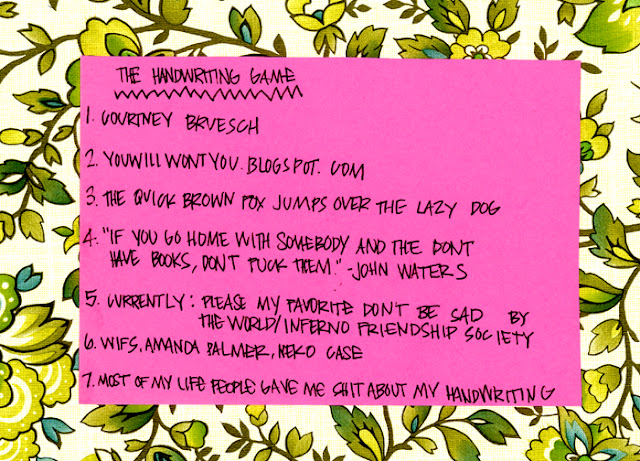 THE HANDWRITING GAME
1. COURTNEY BRUESCH
2. YOUWILLWONTYOU.BLOGSPOT.COM
3. THE QUICK BROWN FOX JUMPS OVER THE LAZY DOG
4. "IF YOU GO HOME WITH SOMEBODY AND THE DONT
HAVE BOOKS, DON'T FUCK THEM." -JOHN WATERS
5. CURRENTLY: PLEASE MY FAVORITE DON'T BE SAD BY
THE WORLD/INFERNO FRIENDSHIP SOCIETY
6. WIFS, AMANDA PALMER, NEKO CASE
7. MOST OF MY LIFE PEOPLE GAVE ME SHIT ABOUT MY HANDWRITING